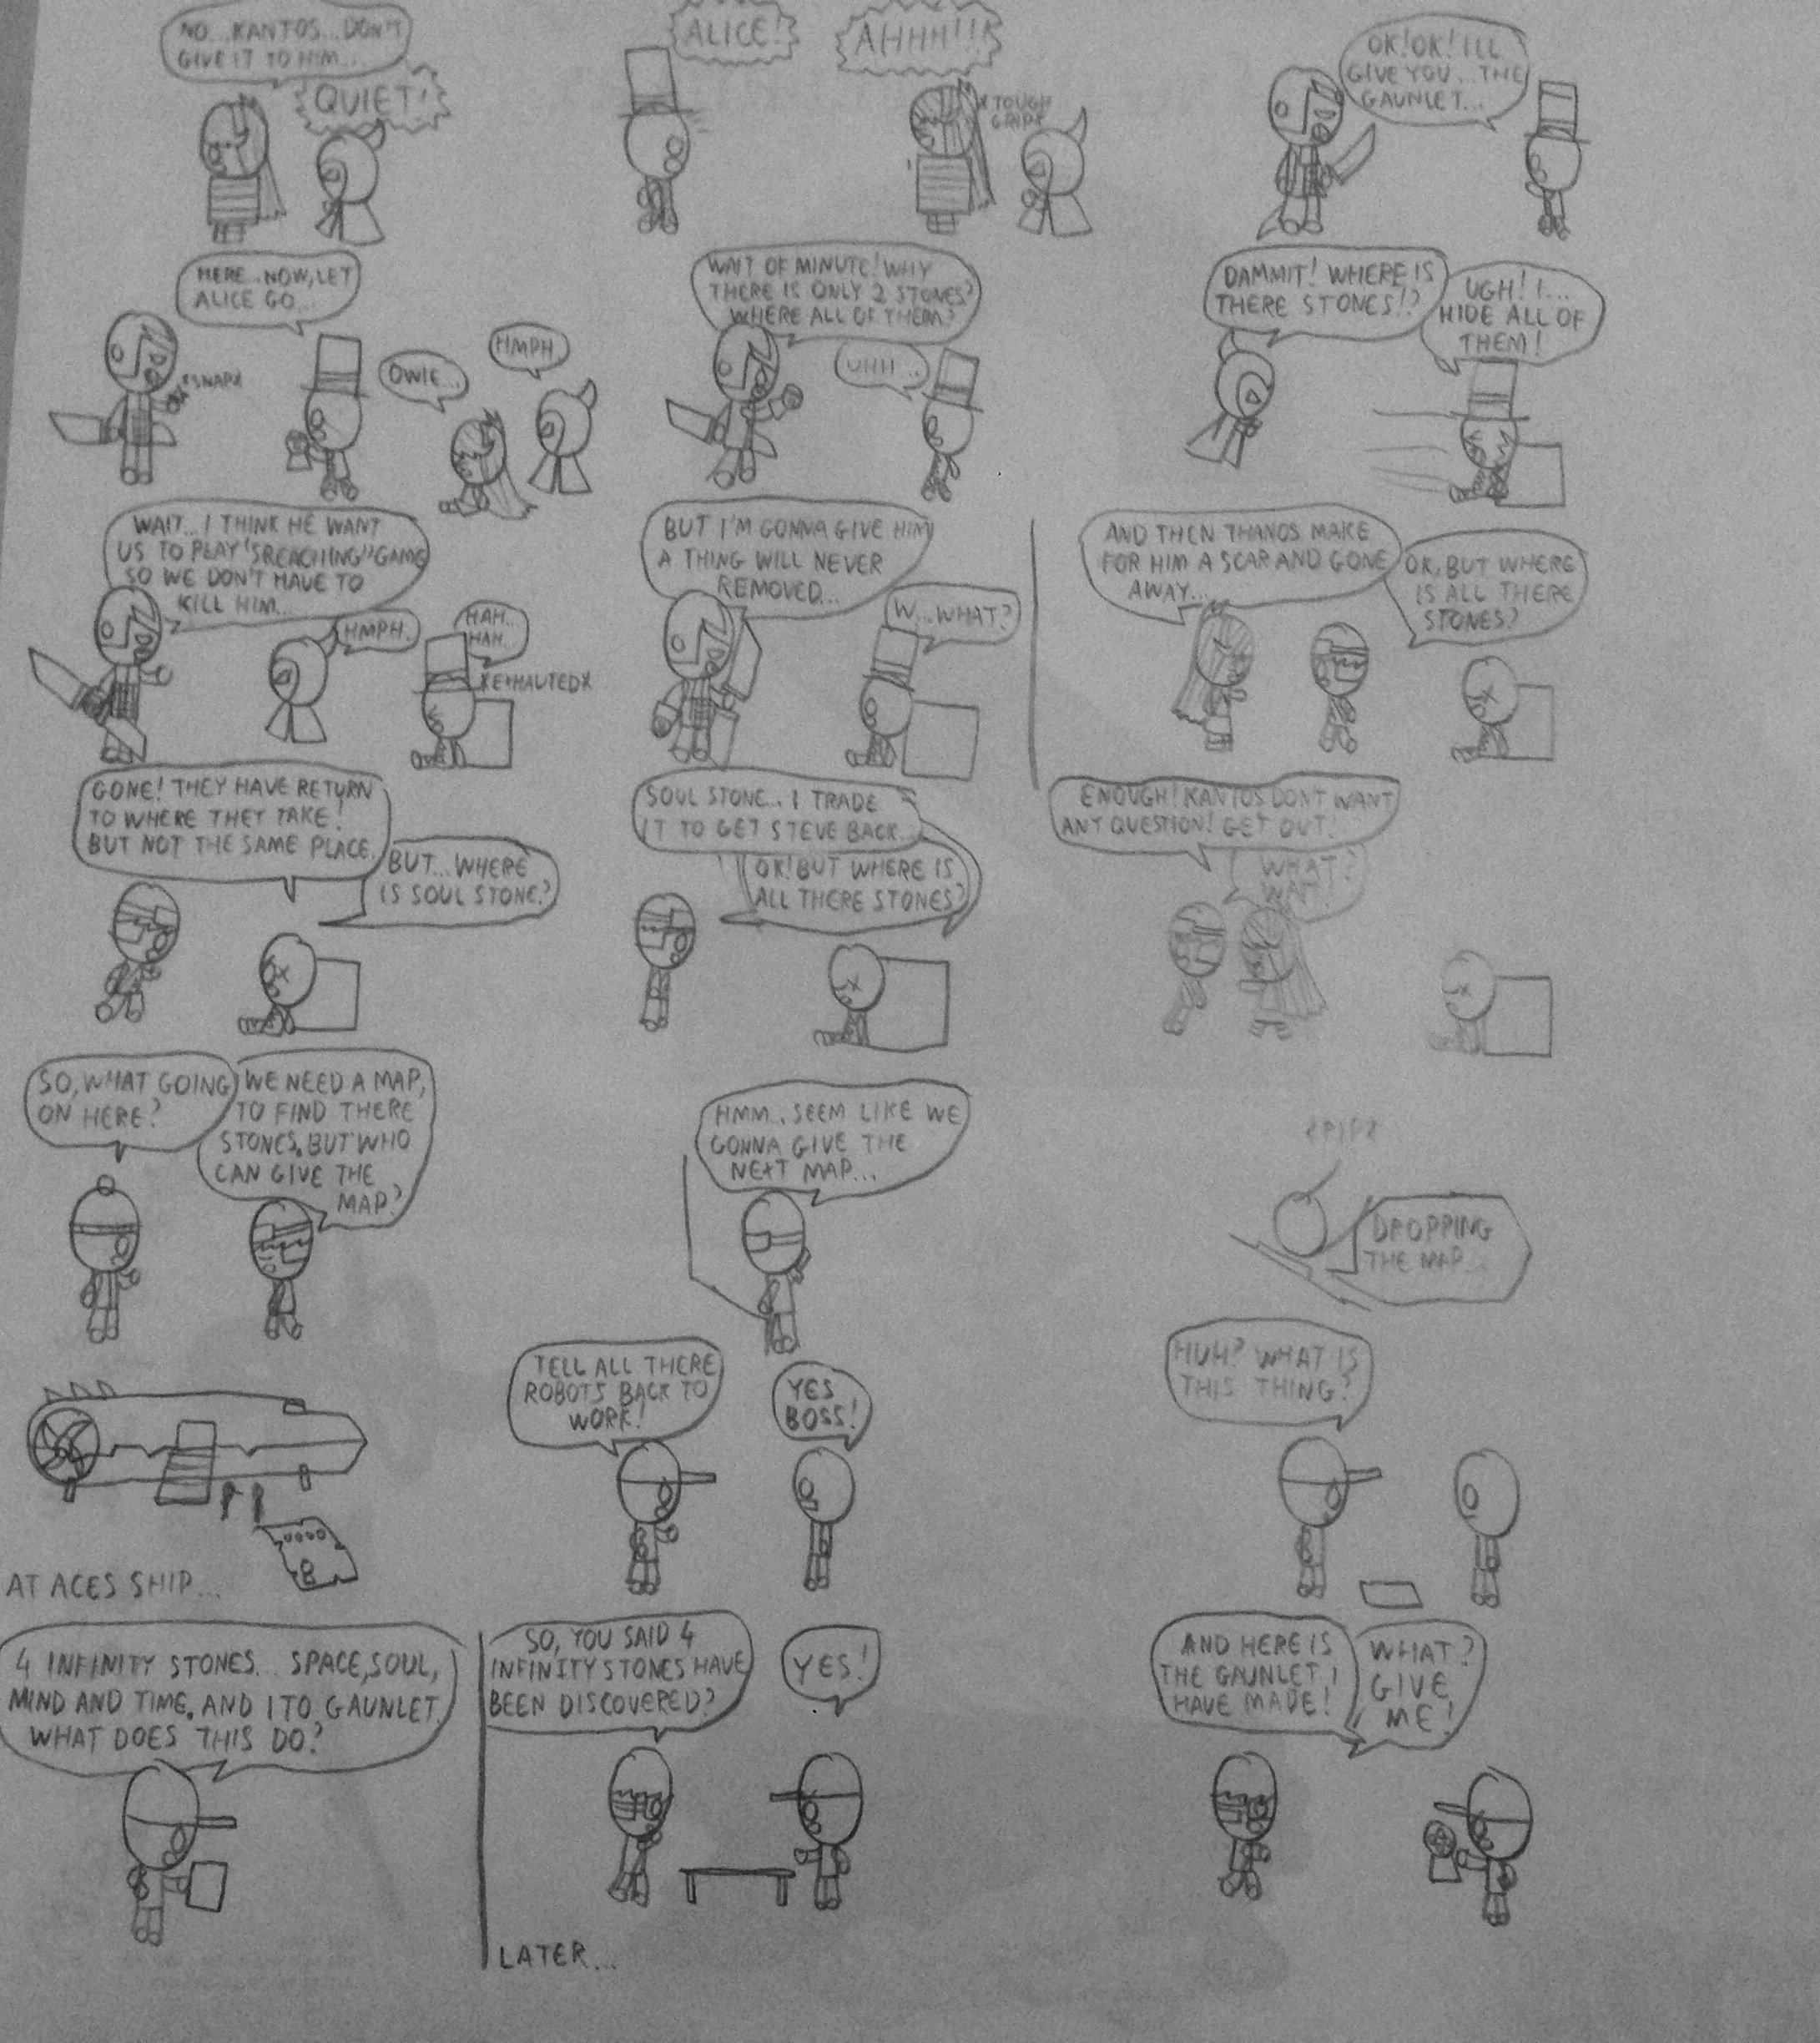 NO...KANTOS...DON'T
GIVE IT TO HIM...
QUIET!
ALICE!
AHHH!!!
*TOUGH
GRIP*
OK! OK! ILL
GIVE YOU...THE
GAUNLET...
HERE...NOW, LET
ALICE GO...
*SNAP*
OWIE...
HMPH.
WAIT OF MINUTE! WHY
THERE IS ONLY 2 STONES?
WHERE ALL OF THEM?
UHH...
DAMMIT! WHERE IS
THERE STONES!?
UGH! I...
HIDE ALL OF
THEM!
WAIT...I THINK HE WANT
US TO PLAY "SREACHING" GAME
SO WE DON'T HAVE TO
KILL HIM...
HMPH.
HAH...
HAH.
*EXHAUTED*
BUT I'M GONNA GIVE HIM
A THING WILL NEVER
REMOVED...
W...WHAT?
AND THEN THANOS MAKE
FOR HIM A SCAR AND GONE
AWAY...
OK, BUT WHERE
IS ALL THERE
STONES?
GONE! THEY HAVE RETURN
TO WHERE THEY TAKE!
BUT NOT THE SAME PLACE.
BUT...WHERE
IS SOUL STONE?
SOUL STONE...I TRADE
IT TO GET STEVE BACK...
OK! BUT WHERE IS
ALL THERE STONES?
ENOUGH! KANTOS DON'T WANT
ANY QUESTION! GET OUT!
WHAT?
WAIT!
SO, WHAT GOING
ON HERE?
WE NEED A MAP,
TO FIND THERE
STONES. BUT WHO
CAN GIVE THE
MAP?
HMM...SEEM LIKE WE
GONNA GIVE THE
NEXT MAP...
*PIP*
DROPPING
THE MAP...
AT ACES SHIP...
TELL ALL THERE
ROBOTS BACK TO
WORK!
YES
BOSS!
HUH? WHAT IS
THIS THING?
4 INFINITY STONES... SPACE, SOUL,
MIND AND TIME. AND 1 TO GAUNLET.
WHAT DOES THIS DO?
SO, YOU SAID 4
INFINITY STONES HAVE
BEEN DISCOVERED?
YES!
LATER...
AND HERE IS
THE GAUNLET, I
HAVE MADE!
WHAT?
GIVE
ME!